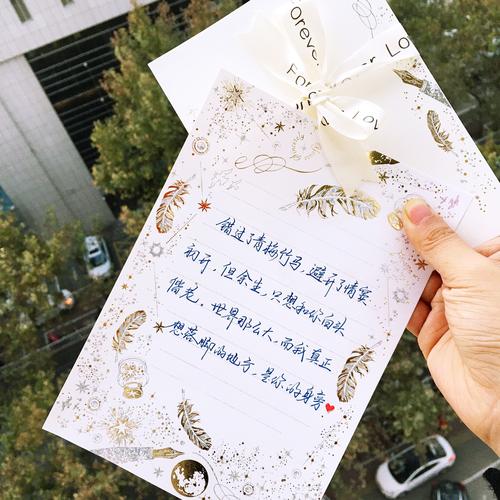 orever
Forever Lo
For
Lov
错过了青梅竹马，避开了情窦
初开，但余生，只想和你白头
偕老，世界那么大，而我真正
想落脚的地方，是你的身旁